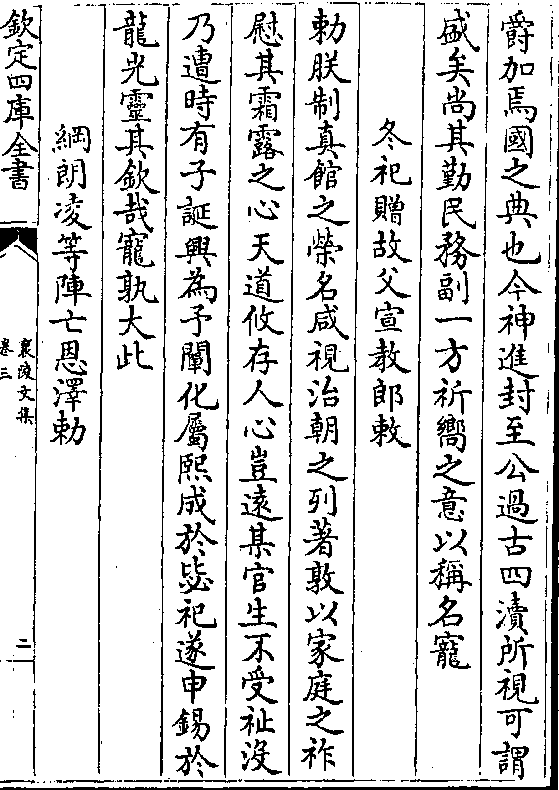 爵加焉國之典也今神進封至公過古四瀆所視可謂
盛矣尚其勤民務副一方祈嚮之意以稱名寵
冬祀贈故父宣教郎敕
勅朕制真館之榮名咸視治朝之列著敦以家庭之祚
慰其霜露之心天道攸存人心豈遠某官生不受祉沒
乃遭時有子誕興為予闡化屬熙成於毖祀遂申錫於
龍光靈其欽哉寵孰大此
綱朗凌等陣亡恩澤勅
欽定四庫全書
襄陵文集
卷三
二